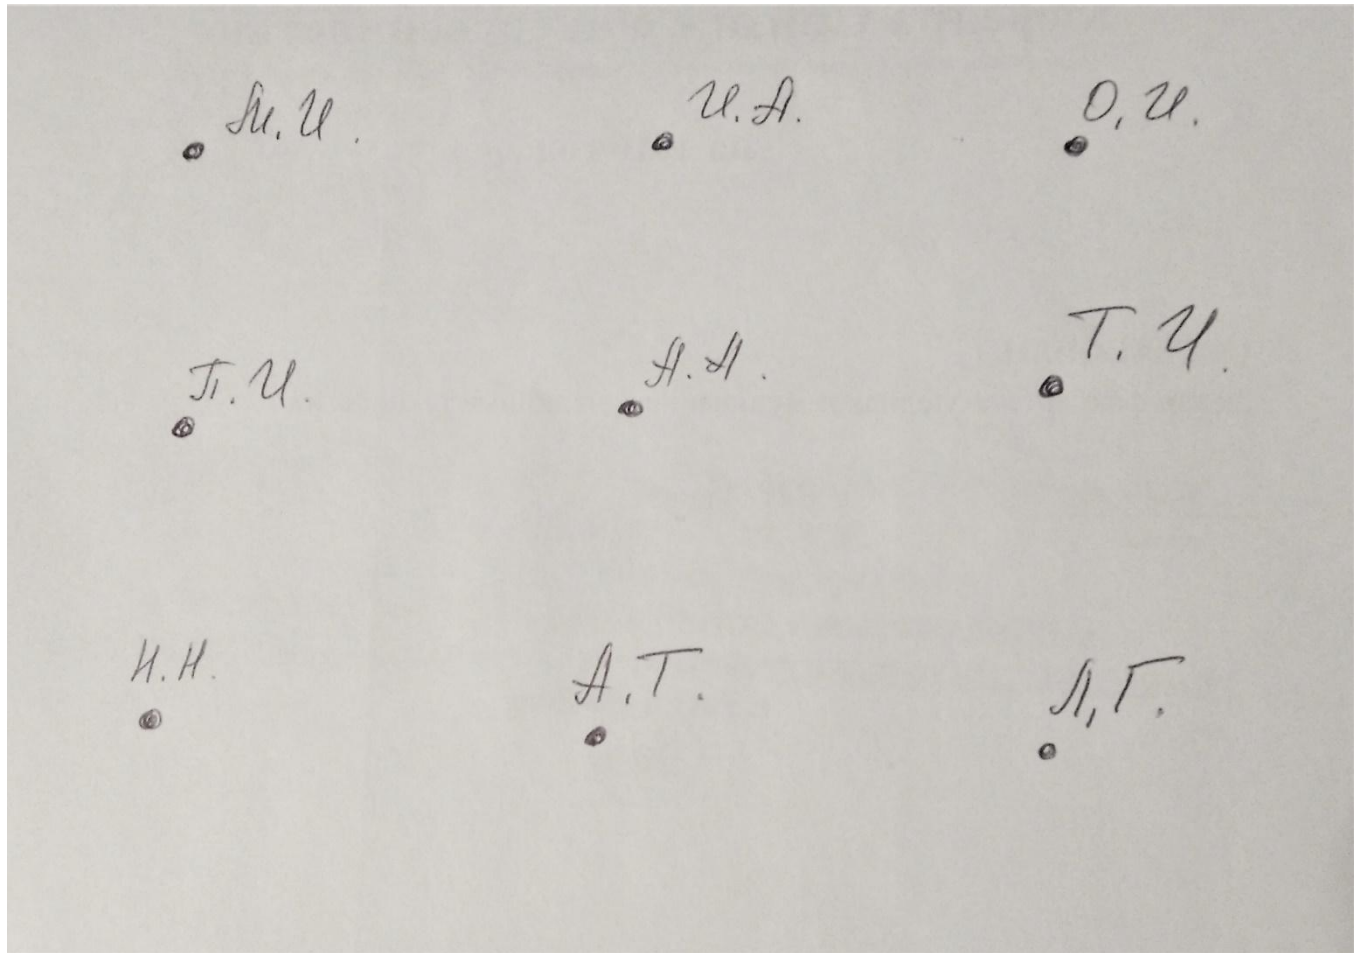 М. И. И. А. О. И.
П. И. А. А. Т. И.
Н. Н. А. Т. Л. Г.